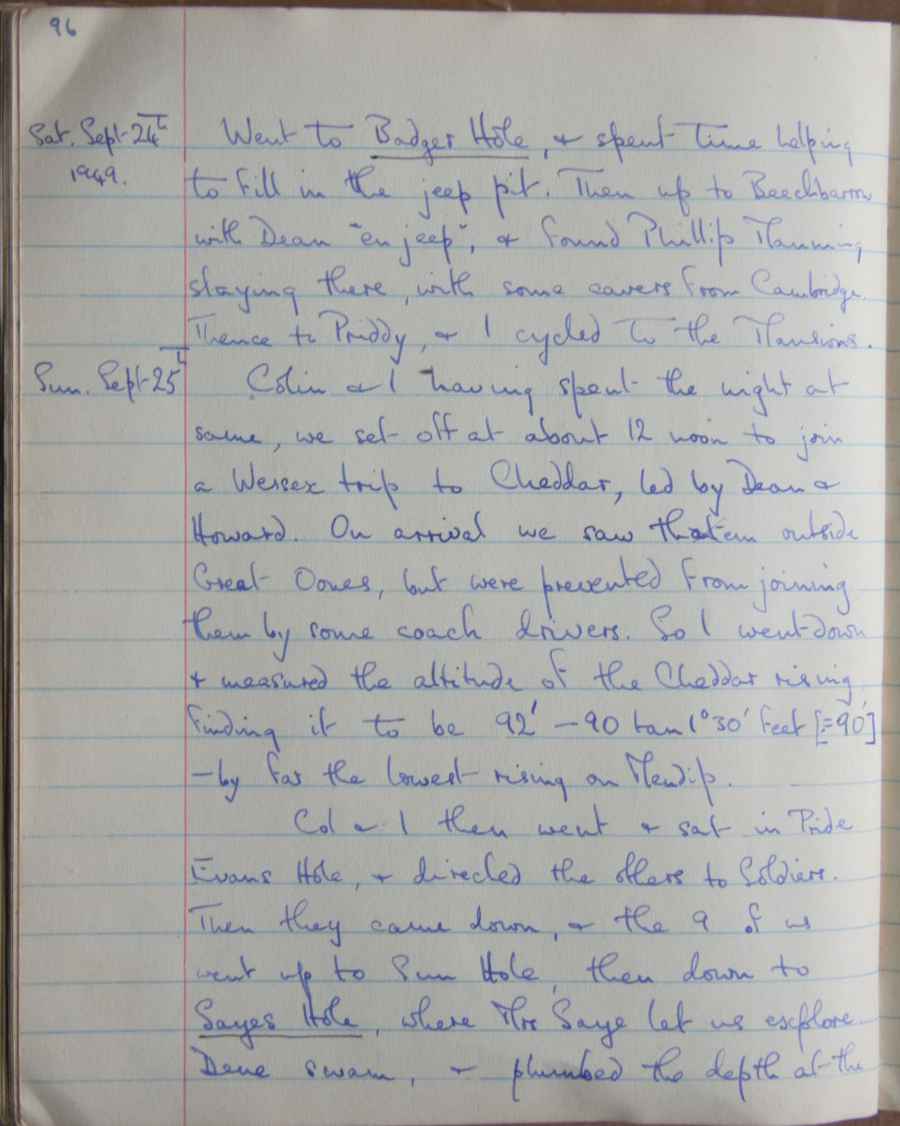 96
Sat. Sept 24th
1949.
Went to Badger Hole, & spent time helping
to fill in the jeep pit. Then up to Beechbarrow
with Dean "en jeep", & found Phillip Manning
staying there, with some cavers from Cambridge.
Thence to Priddy, & I cycled to the Mansions.
Sun. Sept 25th
Colin & I having spent the night at
same, we set off at about 12 noon to join
a Wessex trip to Cheddar, led by Dean &
Howard. On arrival we saw them outside
Great Oones, but were prevented from joining
them by some coach drivers. So I went down
& measured the altitude of the Cheddar rising
finding it to be 92' – 90 tan 1°30' feet [≏90']
– by far the lowest rising on Mendip.
Col & I then went & sat in Pride
Evans Hole, & directed the others to Soldiers.
Then they came down, & the 9 of us
went up to Sun Hole, then down to
Sayes Hole, where Mrs Saye let us explore.
Dene swam, & plumbed the depth at the